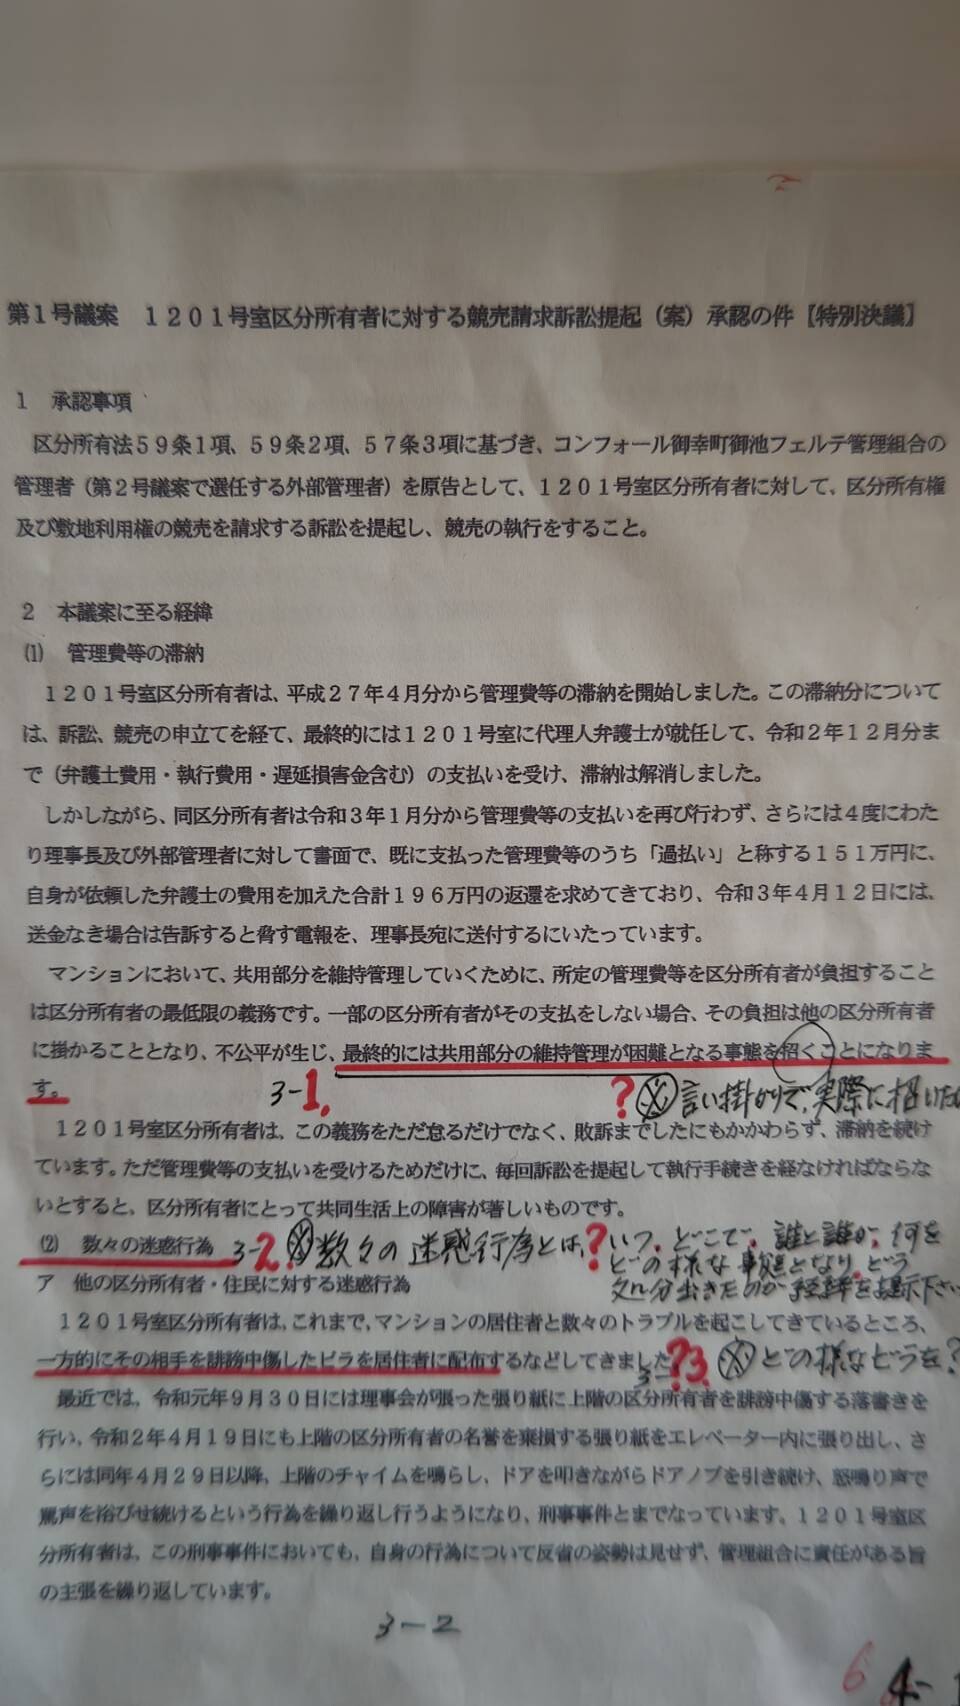 第1号議案　1201号室区分所有者に対する競売請求訴訟提起（案）承認の件【特別決議】
1　承認事項
区分所有法59条1項、59条2項、57条3項に基づき、コンフォール御幸町御池フェルテ管理組合の
管理者（第2号議案で選任する外部管理者）を原告として、1201号室区分所有者に対して、区分所有権
及び敷地利用権の競売を請求する訴訟を提起し、競売の執行をすること。
2　本議案に至る経緯
⑴　管理費等の滞納
1201号室区分所有者は、平成27年4月分から管理費等の滞納を開始しました。この滞納分について
は、訴訟、競売の申立てを経て、最終的には1201号室に代理人弁護士が就任して、令和2年12月分ま
で（弁護士費用・執行費用・遅延損害金含む）の支払いを受け、滞納は解消しました。
しかしながら、同区分所有者は令和3年1月分から管理費等の支払いを再び行わず、さらには4度にわた
り理事長及び外部管理者に対して書面で、既に支払った管理費等のうち「過払い」と称する151万円に、
自身が依頼した弁護士の費用を加えた合計196万円の返還を求めてきており、令和3年4月12日には、
送金なき場合は告訴すると脅す電報を、理事長宛に送付するにいたっています。
マンションにおいて、共用部分を維持管理していくために、所定の管理費等を区分所有者が負担すること
は区分所有者の最低限の義務です。一部の区分所有者がその支払をしない場合、その負担は他の区分所有者
に掛かることとなり、不公平が生じ、最終的には共用部分の維持管理が困難となる事態を招くことになりま
す。
3-1.
? ※言い掛かりで、実際に招いた
1201号室区分所有者は、この義務をただ怠るだけでなく、敗訴までしたにもかかわらず、滞納を続け
ています。ただ管理費等の支払いを受けるためだけに、毎回訴訟を提起して執行手続きを経なければならな
いとすると、区分所有者にとって共同生活上の障害が著しいものです。
⑵　数々の迷惑行為
3-2 ※数々の迷惑行為とは、? いつ、どこで、誰と誰が、何を
どの様な事態となり、どう
処分出きたのか経緯を提示下さい
ア　他の区分所有者・住民に対する迷惑行為
1201号室区分所有者は、これまで、マンションの居住者と数々のトラブルを起こしてきているところ、
一方的にその相手を誹謗中傷したビラを居住者に配布するなどしてきました
? 3-3. ※どの様なビラを?
最近では、令和元年9月30日には理事会が張った張り紙に上階の区分所有者を誹謗中傷する落書きを
行い、令和2年4月19日にも上階の区分所有者の名誉を棄損する張り紙をエレベーター内に張り出し、さ
らには同年4月29日以降、上階のチャイムを鳴らし、ドアを叩きながらドアノブを引き続け、怒鳴り声で
罵声を浴びせ続けるという行為を繰り返し行うようになり、刑事事件とまでなっています。1201号室区
分所有者は、この刑事事件においても、自身の行為について反省の姿勢は見せず、管理組合に責任がある旨
の主張を繰り返しています。
3-2
6
4-